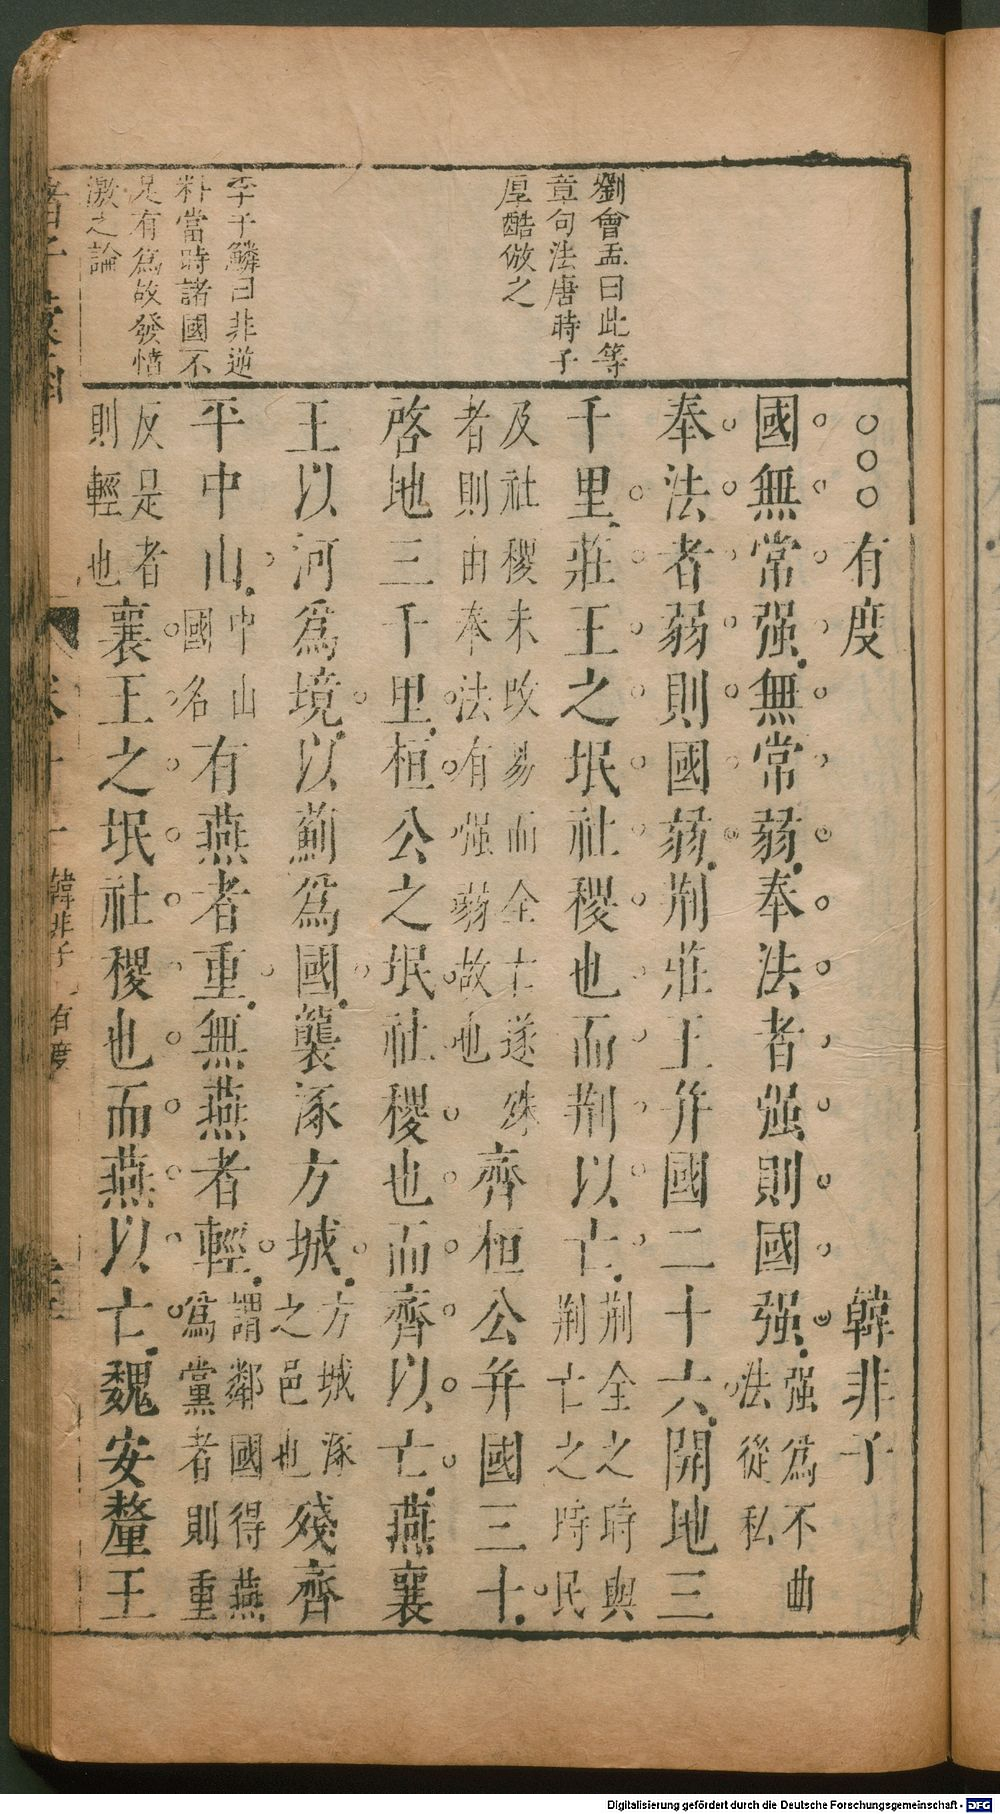 有度 韓非子
國無常强無常弱奉法者强則國强強爲不曲法從私
奉法者弱則國弱荆莊王并國二十六開地三
千里莊王之氓社稷也而荆以亡荆全之時與荆亡之時民
及社稷未改易而全亡遂殊者則由奉法有强弱故也齊桓公并國三十
啓地三千里桓公之氓社稷也而齊以亡燕襄
王以河爲境以薊爲國襲涿方城方城涿之邑也殘齊
平中山中山國名有燕者重無燕者輕謂鄰國得燕爲黨者則重
反是者則輕也襄王之氓社稷也而燕以亡魏安釐王
劉會孟曰此等
章句法唐時子
厚酷倣之
李于鱗曰非逆
料當時諸國不
足有爲故發憤
激之論
韓非子 有度
Digitalisierung gefördert durch die Deutsche Forschungsgemeinschaft - DFG